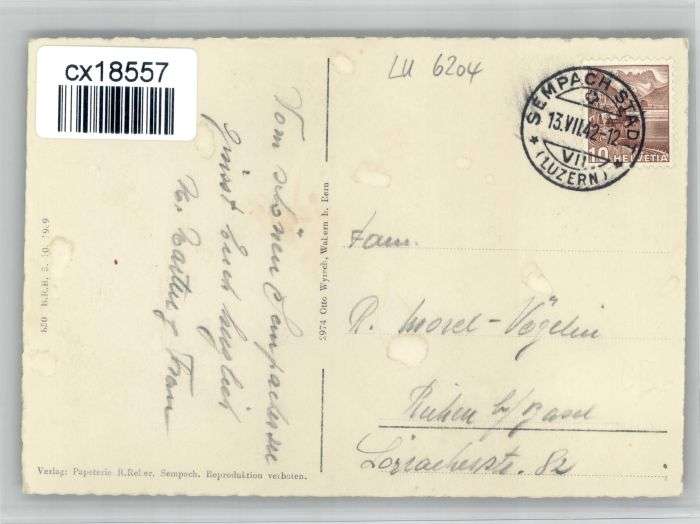 cx18557
LU 6204
SEMPACH STADT
13.VII.42-12
VII
(LUZERN)
10 HELVETIA
Vom schönen Sempachersee
grüsst Euch herzlich
Frau
6820 B.R.B. 3. 10. 1939
2974 Otto Wyrsch, Wabern b. Bern
Fam.
R. Morel-Vögelin
Riehen b/Basel
Lörracherstr. 82
Verlag: Papeterie R. Reber, Sempach. Reproduktion verboten.